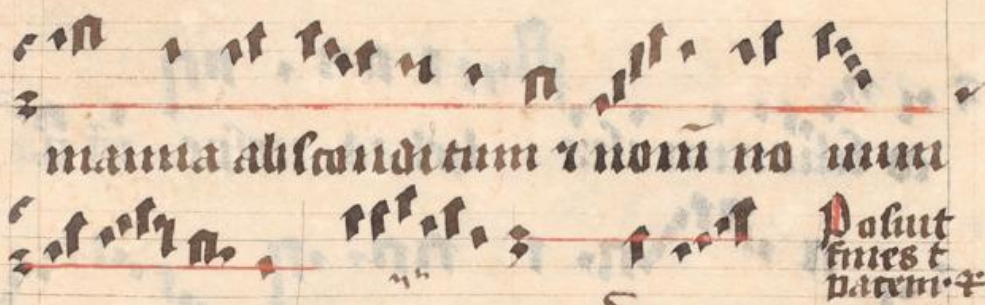 manna absconditum ⁊ nom̄ no uum
Posuit
fines t
pacem.